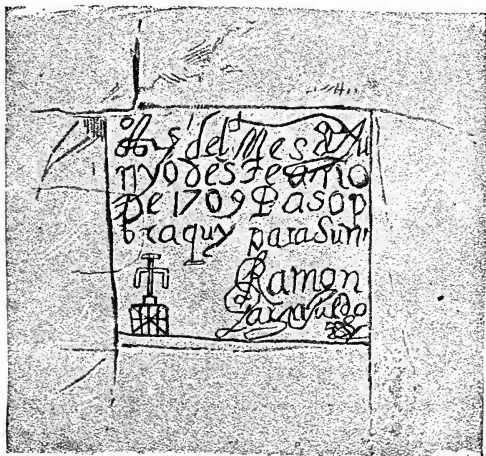 del Mes de Ju
nyo desTe anno
De 1709 Paso p
br aquy para Suni
Ramon
Garcia Jurado